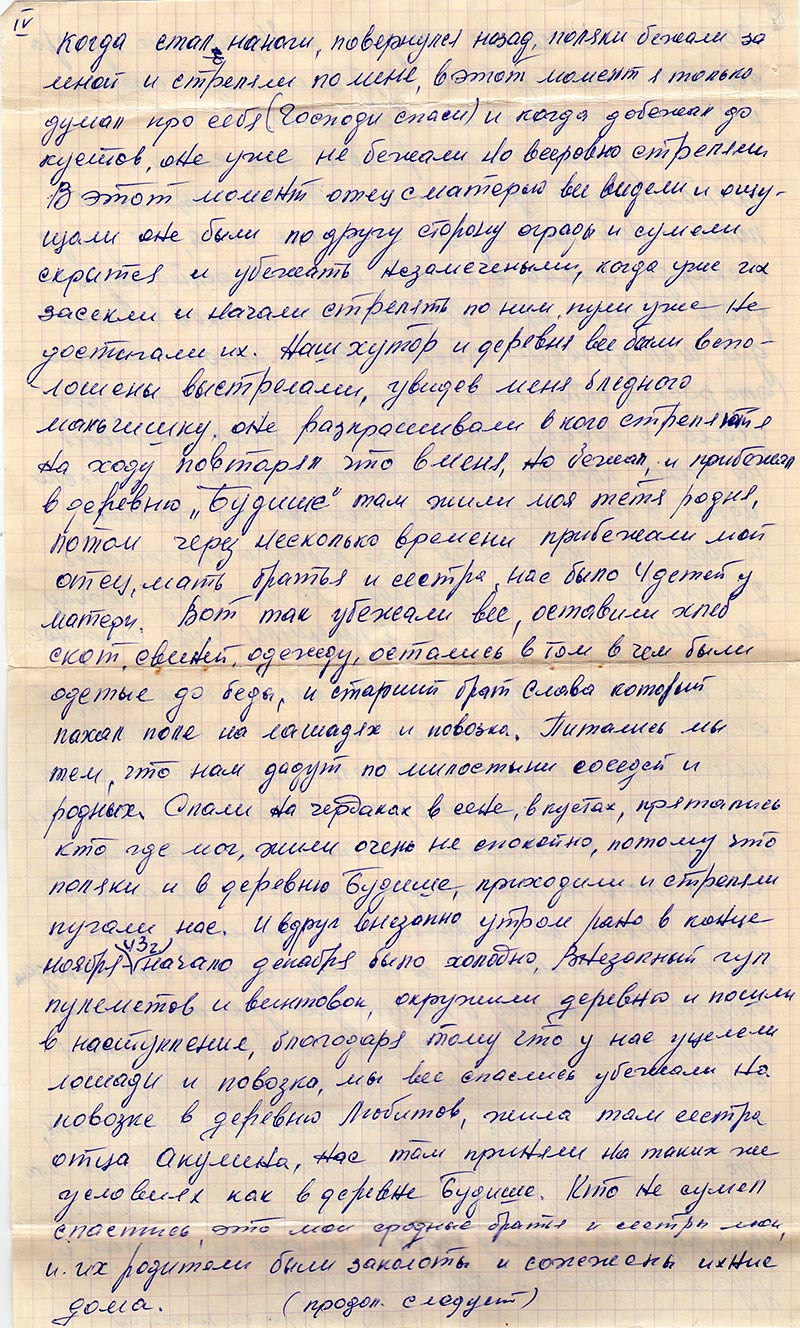 IV
Когда стал на ноги, повернулся назад, поляки бежали за
мной и стреляли по мене, в этот момент я только
думал про себя (Господи спаси) и когда добежал до
кустов, оне уже не бежали но всеровно стреляли
В этот момент отец с матерью все видели и ощу-
щали оне были по другу сторону ограды и сумели
скрытся и убежать незамечеными, когда уже их
засекли и начали стрелять по ним, пули уже не
достигали их. Наш хутор и деревня все были вспо-
лошены выстрелами, увидев меня бледного
мальчишку, оне разпрашивали в кого стреляют я
на ходу повторял что в меня, но бежал, и прибежал
в деревню „Будище" там жили моя тётя родня,
потом через несколько времени прибежали мой
отец, мать братья и сестра, нас было 4 детей у
матери. Вот так убежали все, оставили хлеб
скот, свиней, одежду, остались в том в чем были
одетые до беды, и старший брат Слава который
пахал поле на лашадях и повозка. Питались мы
тем, что нам дадут по милостыни соседей и
родных. Спали на чердаках в сене, в кустах, прятались
кто где мог, жили очень не спокойно, потому что
поляки и в деревню Будище, приходили и стреляли
пугали нас. И вдруг внезапно утром рано в конце
ноября (43г) начало декабря было холодно, Внезапный гул
пулеметов и винтовок, окружили деревню и пошли
в наступление, благодаря тому что у нас уцелели
лошади и повозка, мы все спаслись убежали на
повозке в деревню Любитов, жила там сестра
отца Акулина, нас там приняли на таких же
условиях как в деревне Будище. Кто не сумел
спастись, это мои сродные братья и сестры мои,
и их родители были заколоты и сожжены ихние
дома. (продол. следует)